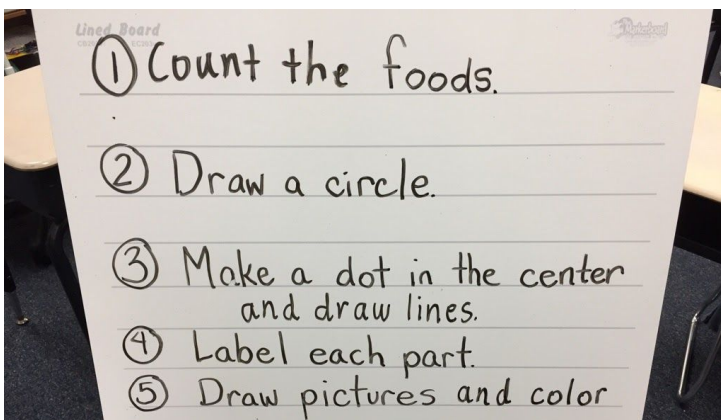 Lined Board
① Count the foods.
② Draw a circle.
③ Make a dot in the center
and draw lines.
④ Label each part.
⑤ Draw pictures and color